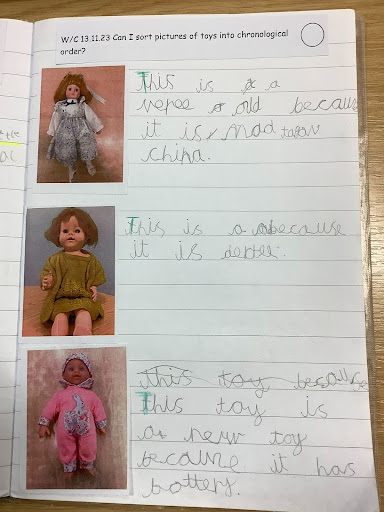 W/C 13.11.23 Can I sort pictures of toys into chronological
order?
This is a
vepee old because
it is mad
china.
This is a because
it is
this toy because
This toy is
a new toy
because it has
battery.